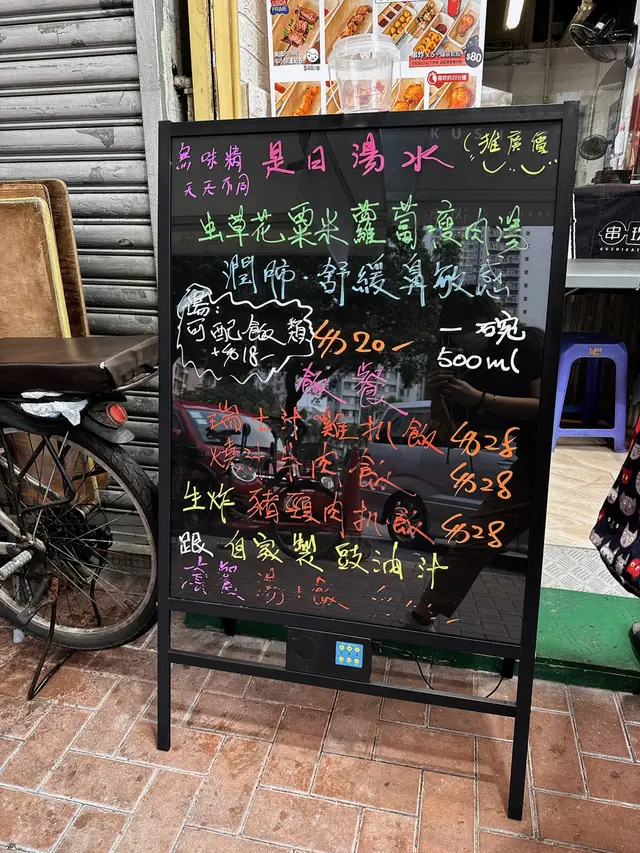 無味精
天天不同
是日湯水
(推廣價
虫草花粟米蘿蔔瘦肉湯
潤肺·舒緩鼻敏感
湯:
可配飯類
+$18-
$20-
一碗
500ml
飯餐
瑞士汁雞扒飯 $28
燒汁牛肉飯 $28
生炸豬頸肉扒飯 $28
跟自家製豉油汁
USDA
PRIME
$48/串
$80